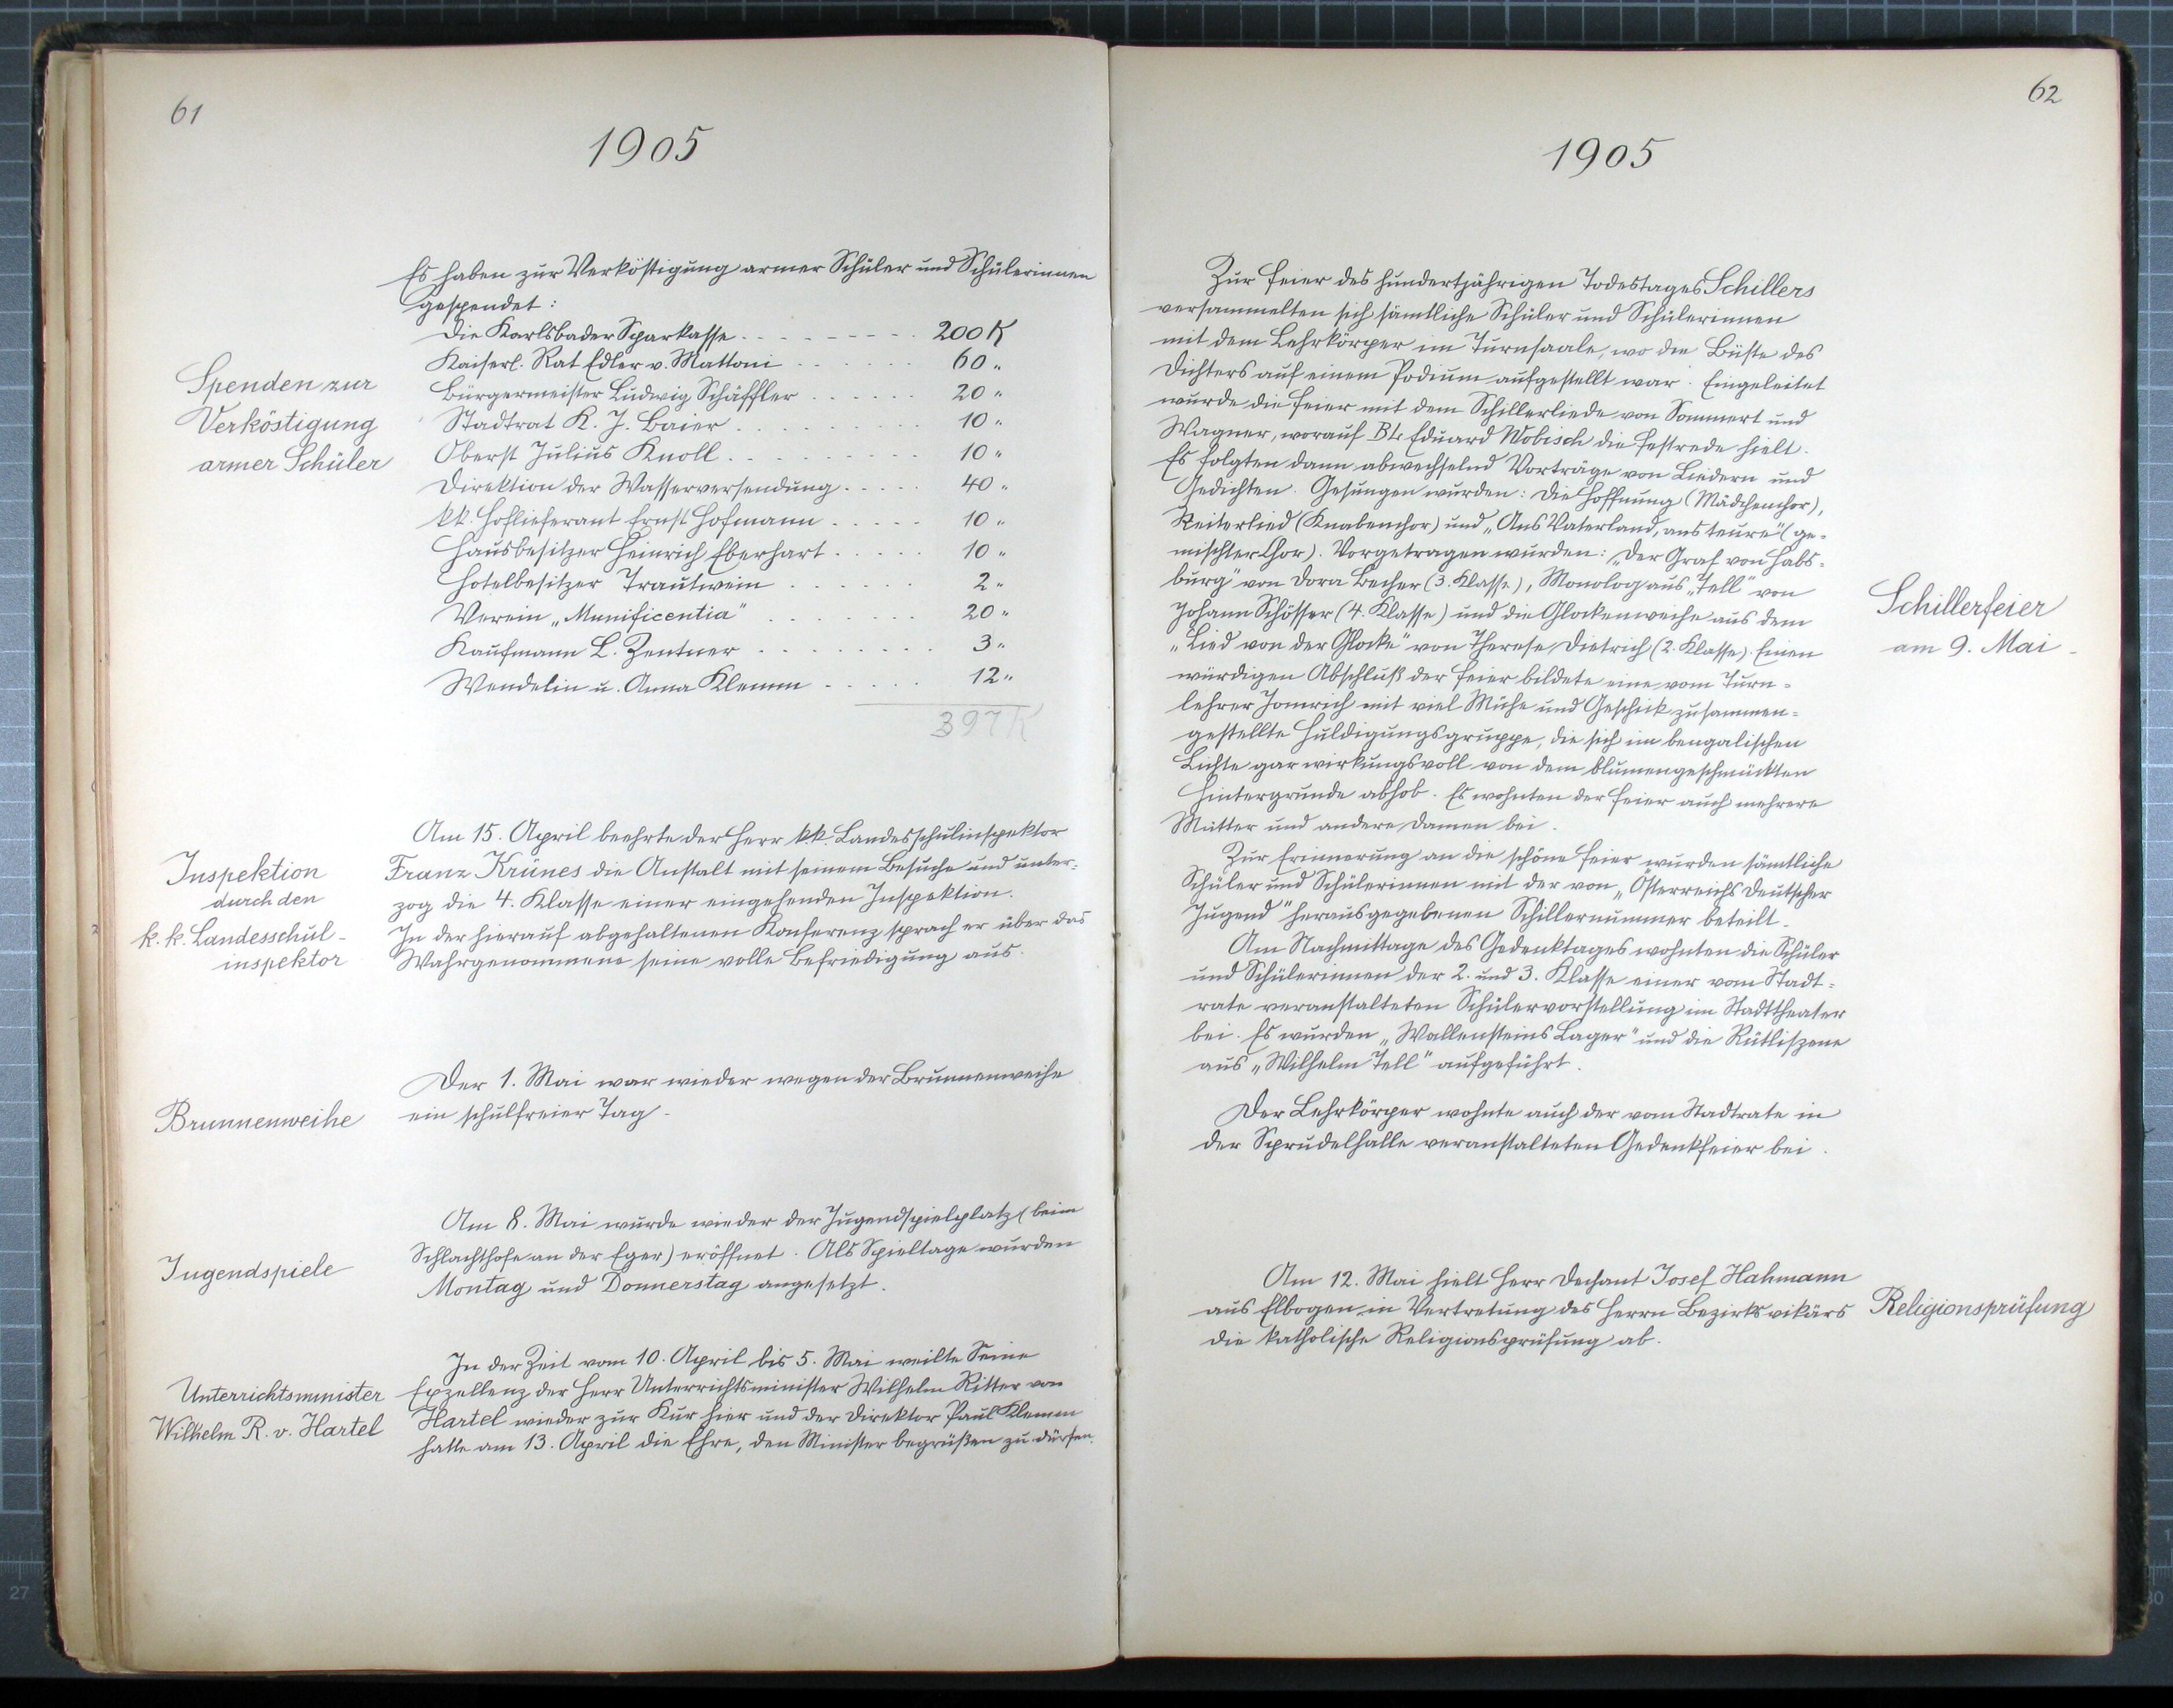 61
1905
Es haben zur Verköstigung armer Schüler und Schülerinnen
gespendet:
Die Karlsbader Sparkasse . . . . . . . . 200 K
Kaiserl. Rat Edler v. Mattoni . . . . . 60 "
Bürgermeister Ludwig Schäffler . . . . . . 20 "
Stadtrat K. J. Baier . . . . . . . . . 10 "
Oberst Julius Knoll . . . . . . . . . 10 "
Direktion der Wasserversendung . . . . . 40 "
k.k. Hoflieferant Ernst Hofmann . . . . . 10 "
Hausbesitzer Heinrich Eberhart . . . . . 10 "
Hotelbesitzer Trautwein . . . . . . 2 "
Verein „Munificentia" . . . . . . . 20 "
Kaufmann L. Zentner . . . . . . . . 3 "
Wendelin u. Anna Klemm . . . . . 12 "
397 K
Spenden zur
Verköstigung
armer Schüler
Am 15. April beehrte der Herr k.k. Landesschulinspektor
Franz Krünes die Anstalt mit seinem Besuche und unter-
zog die 4. Klasse einer eingehenden Inspektion.
In der hierauf abgehaltenen Konferenz sprach er über das
Wahrgenommene seine volle Befriedigung aus.
Inspektion
durch den
k. k. Landesschul-
inspektor
Der 1. Mai war wieder wegen der Brunnenweihe
ein schulfreier Tag.
Brunnenweihe
Am 8. Mai wurde wieder der Jugendspielplatz (beim
Schlachthofe an der Eger) eröffnet. Als Spieltage wurden
Montag und Donnerstag angesetzt.
Jugendspiele
In der Zeit vom 10. April bis 5. Mai weilte Seine
Exzellenz der Herr Unterrichtsminister Wilhelm Ritter von
Hartel wieder zur Kur hier und der Direktor Paul Klemm
hatte am 13. April die Ehre, den Minister begrüßen zu dürfen.
Unterrichtsminister
Wilhelm R. v. Hartel
62
1905
Zur Feier des hundertjährigen Todestages Schillers
versammelten sich sämtliche Schüler und Schülerinnen
mit dem Lehrkörper im Turnsaale, wo die Büste des
Dichters auf einem Podium aufgestellt war. Eingeleitet
wurde die Feier mit dem Schillerliede von Sommert und
Wagner, worauf BL. Eduard Wobisch die Festrede hielt.
Es folgten dann abwechselnd Vorträge von Liedern und
Gedichten. Gesungen wurden: Die Hoffnung (Mädchenchor),
Reiterlied (Knabenchor) und „Ans Vaterland, ans teure" (ge-
mischter Chor). Vorgetragen wurden: „Der Graf von Habs-
burg" von Dora Becher (3. Klasse), Monolog aus „Tell" von
Johann Schösser (4. Klasse) und die Glockenweihe aus dem
„Lied von der Glocke" von Therese Dietrich (2. Klasse). Einen
würdigen Abschluß der Feier bildete eine vom Turn-
lehrer Jomrich mit viel Mühe und Geschick zusammen-
gestellte Huldigungsgruppe, die sich im bengalischen
Lichte gar wirkungsvoll von dem blumengeschmückten
Hintergrunde abhob. Es wohnten der Feier auch mehrere
Mütter und andere Damen bei.
Zur Erinnerung an die schöne Feier wurden sämtliche
Schüler und Schülerinnen mit der von „Österreichs deutscher
Jugend" herausgegebenen Schillernummer beteilt.
Am Nachmittage des Gedenktages wohnten die Schüler
und Schülerinnen der 2. und 3. Klasse einer vom Stadt-
rate veranstalteten Schülervorstellung im Stadttheater
bei. Es wurden „Wallensteins Lager" und die Rütliszene
aus „Wilhelm Tell" aufgeführt.
Der Lehrkörper wohnte auch der vom Stadtrate in
der Sprudelhalle veranstalteten Gedenkfeier bei.
Schillerfeier
am 9. Mai
Am 12. Mai hielt Herr Dechant Josef Hahmann
aus Elbogen in Vertretung des Herrn Bezirksvikärs
die katholische Religionsprüfung ab.
Religionsprüfung
27